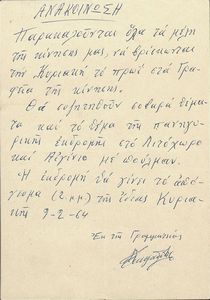 ΑΝΑΚΟΙΝΩΣΗ
Παρακαλοῦνται ὅλα τά μέλη
τῆς κινήσεως μας, νά βρίσκωνται
τήν Κυριακή τό πρωί στά Γρα-
φεῖα τῆς κινήσης.
Θά συζητηθοῦν σοβαρά θέμα-
τα καί τό θέμα τῆς πανηγυ-
ρικῆς ἐκδρομῆς στό Λιτόχωρο
καί Αἰγίνιο μέ πούλμαν.
Ἡ ἐκδρομή θά γίνει τό ἀπό-
γευμα (2.μ.μ.) τῆς ἴδιας Κυρια-
κῆς 9-2-64
Ἐκ τῆς Γραμματείας